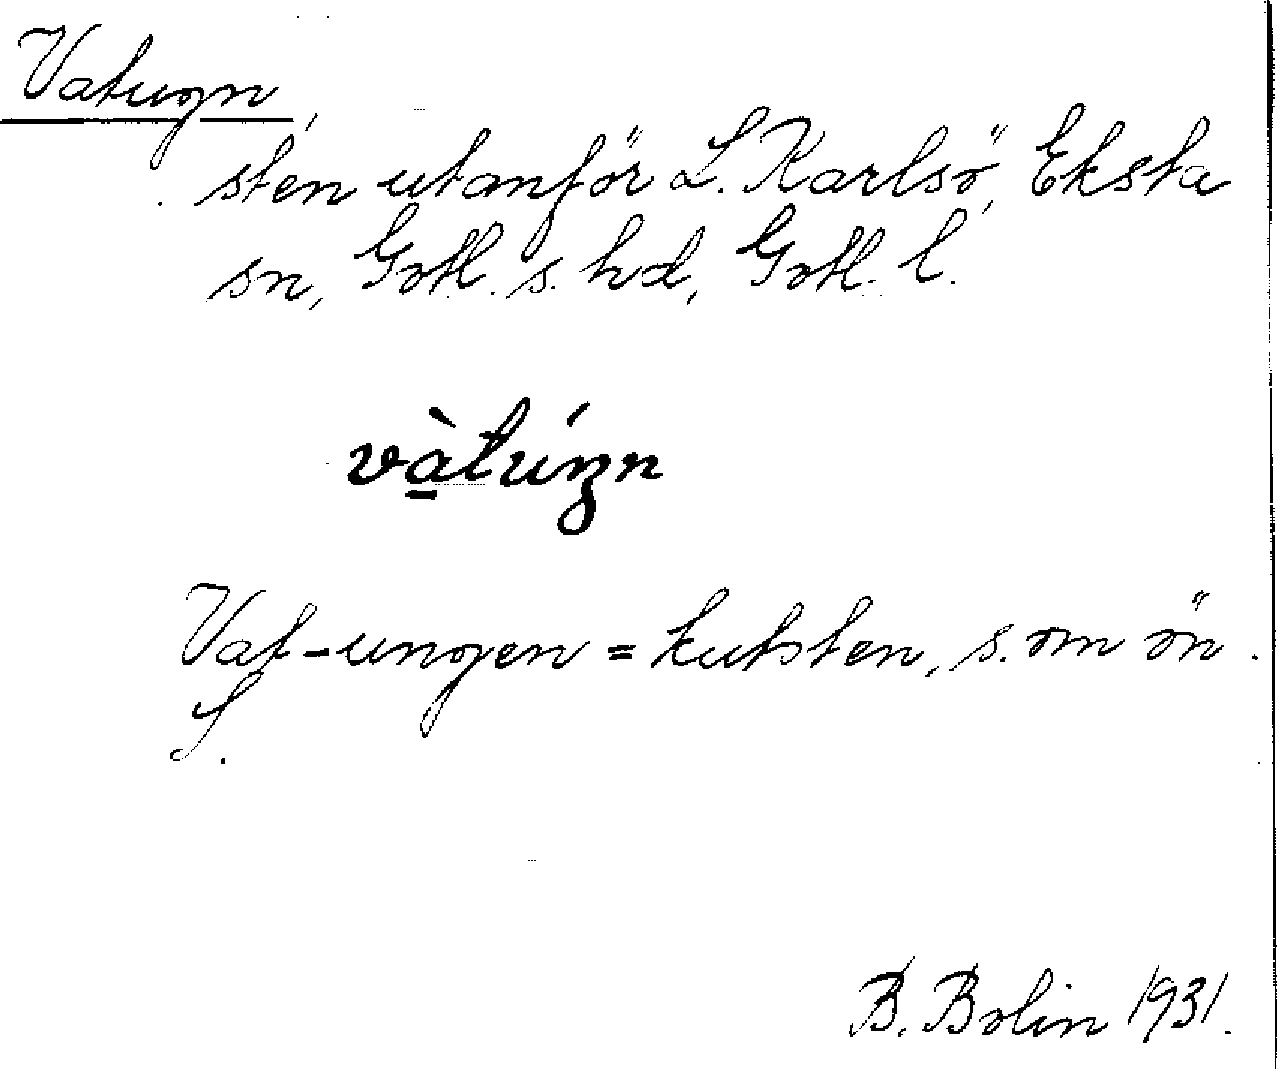 Vatugn
sten utanför L. Karlsö, Eksta
sn, Gotl. s. hd, Gotl. l.
vàtúŋn
Vat-ungen = kutsten, s. om ön
S.
B. Bolin 1931.